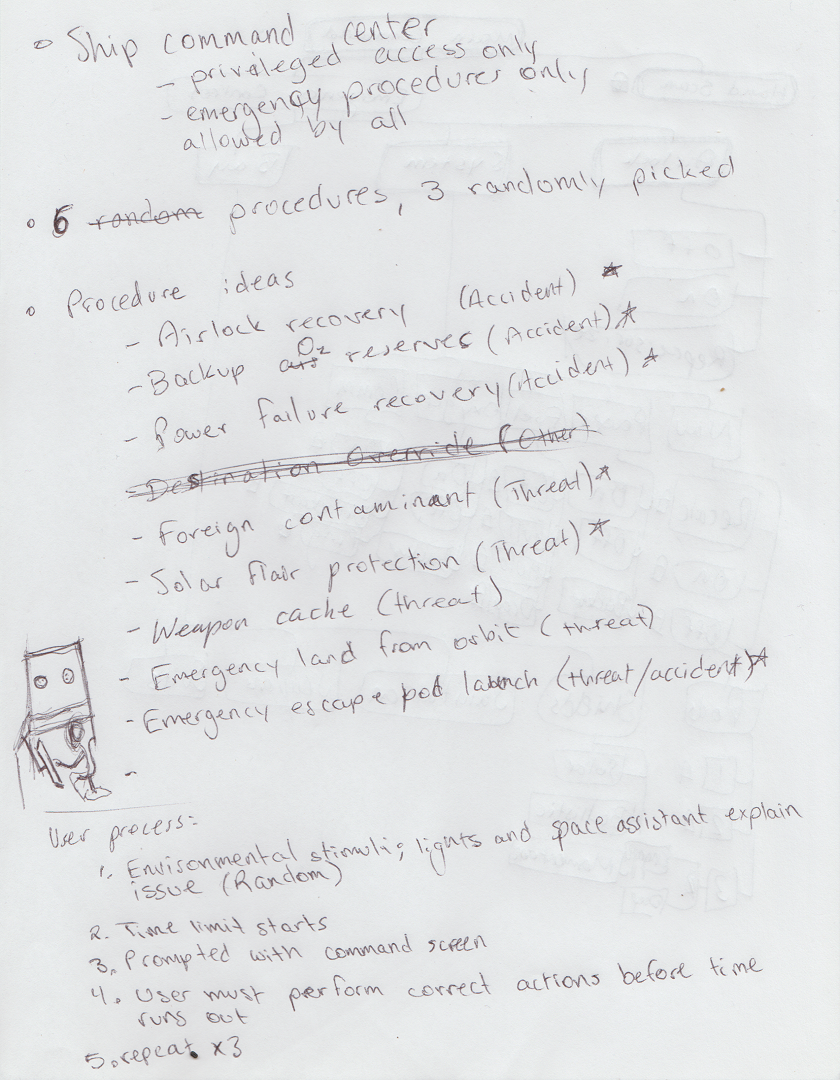 ○ Ship command center
- privileged access only
- emergency procedures only
allowed by all
○ 6 random procedures, 3 randomly picked
○ Procedure ideas
- Airlock recovery (Accident) ☆
- Backup O2 reserves (Accident) ☆
- Power failure recovery (Accident) ☆
- Destination Override (Other)
- Foreign contaminant (Threat) ☆
- Solar flair protection (Threat) ☆
- Weapon cache (threat)
- Emergency land from orbit (threat)
- Emergency escape pod launch (threat/accident) ☆
-
User process:
1. Environmental stimuli; lights and space assistant explain
issue (Random)
2. Time limit starts
3. Prompted with command screen
4. User must perform correct actions before time
runs out
5. repeat x3